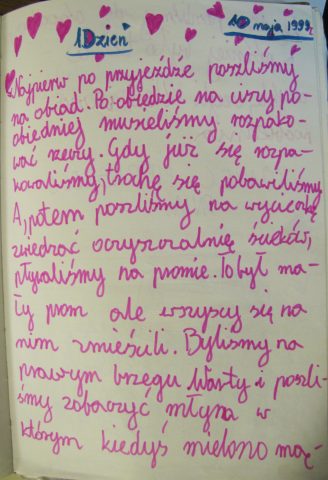 1 Dzień
10 maja 1999r
Najpierw po przyjeździe poszliśmy
na obiad. Po obiedzie na ciszy po-
obiedniej musieliśmy rozpako-
wać rzeczy. Gdy już się rozpa-
kowaliśmy, trochę się pobawiliśmy
A, potem poszliśmy na wycieczkę
zwiedzać oczyszczalnię ścieków,
pływaliśmy na promie. To był ma-
ły prom ale wszyscy się na
nim zmieścili. Byliśmy na
prawym brzegu Warty i poszli-
śmy zobaczyć młyn w
którym kiedyś mielono mą-